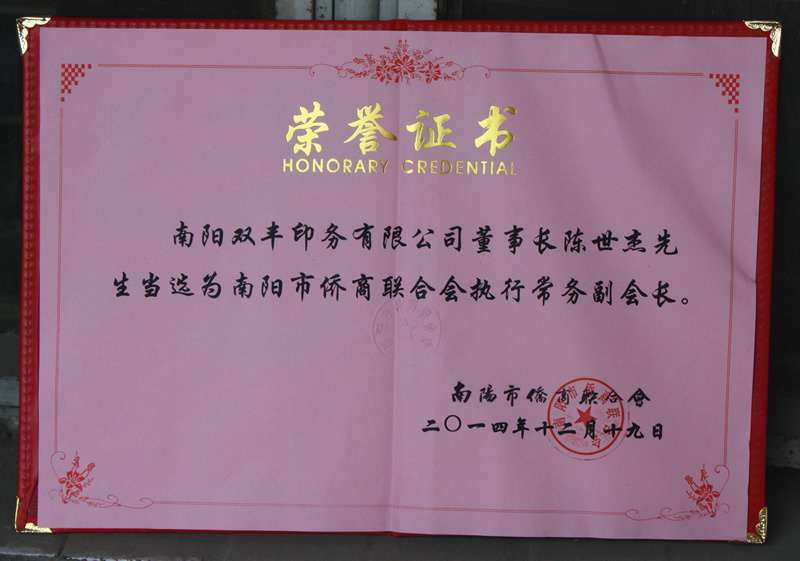 荣誉证书
HONORARY CREDENTIAL
南阳双丰印务有限公司董事长陈世杰先
生当选为南阳市侨商联合会执行常务副会长。
南陽市僑商联合會
二〇一四年十二月十九日